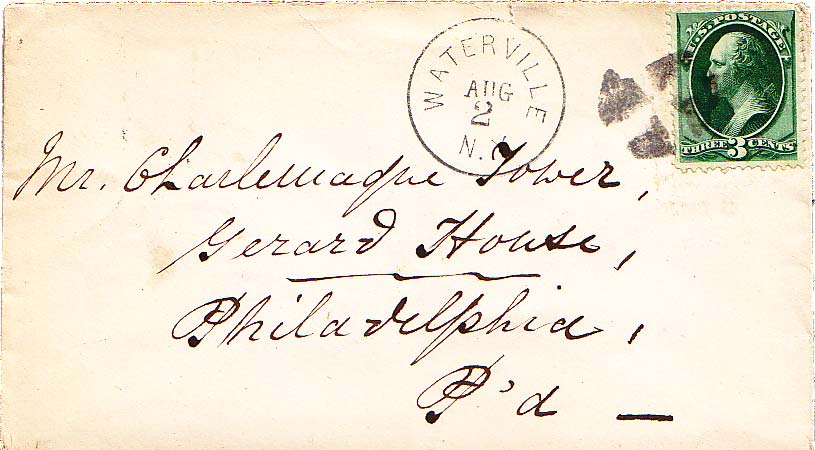 WATERVILLE
AUG
2
N.Y.
U.S. POSTAGE
THREE 3 CENTS
Mr. Charlemagne Tower,
Gerard House,
Philadelphia,
P'a —